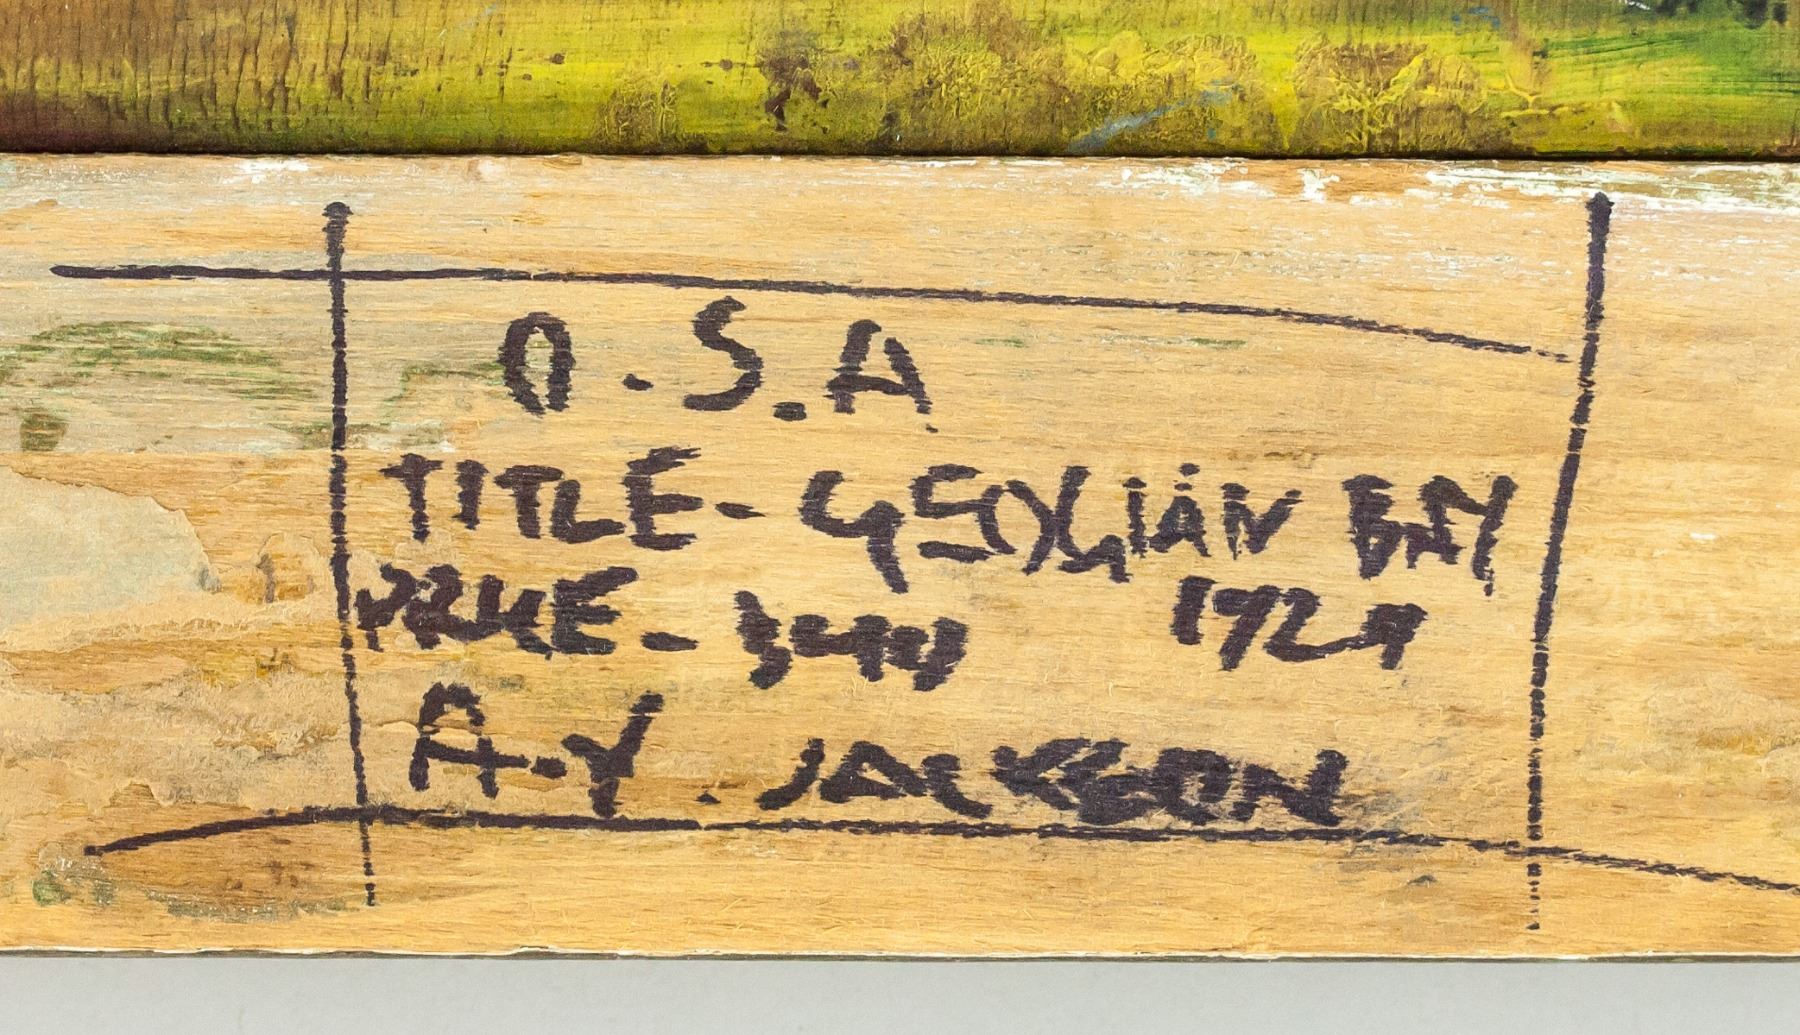 O.S.A
TITLE - GEORGIAN BAY
PRICE -
A.Y. JACKSON